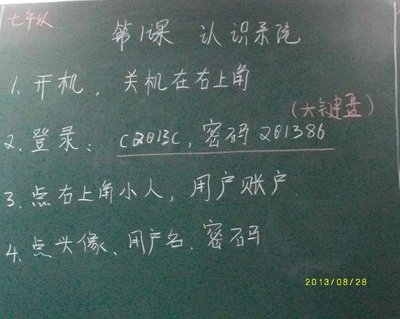 七年级
第1课 认识系统
1、开机，关机在右上角
（大键盘）
2、登录：c2013c，密码 201386
3、点右上角小人，用户账户.
4、点头像、用户名、密码
2013/08/28